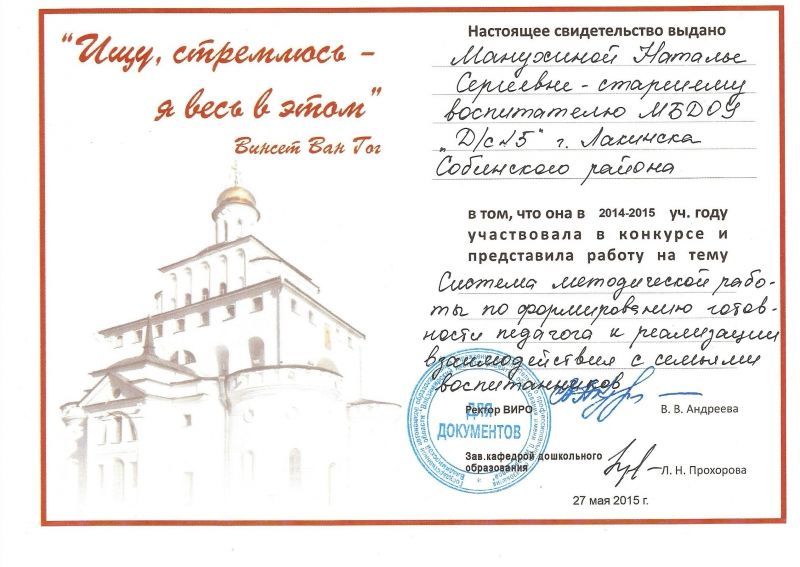 "Ищу, стремлюсь -
я весь в этом"
Винсет Ван Гог
Настоящее свидетельство выдано
Манухиной Наталье
Сергеевне - старшему
воспитателю МБДОУ
"Д/с №5" г. Лакинска
Собинского района
в том, что она в 2014-2015 уч. году
участвовала в конкурсе и
представила работу на тему
Система методической рабо-
ты по формированию готов-
ности педагога к реализации
взаимодействия с семьями
воспитанников
Ректор ВИРО
В. В. Андреева
ДЛЯ
ДОКУМЕНТОВ
Зав.кафедрой дошкольного
образования
Л. Н. Прохорова
27 мая 2015 г.